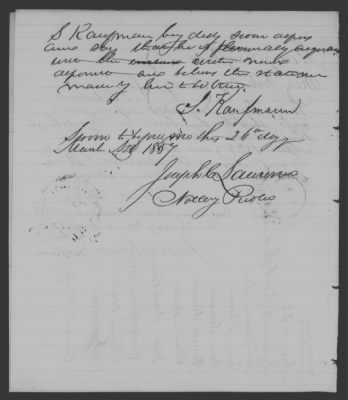 S Kaufmann being duly sworn deposes
and says that he is personally acquainted
with the within named
deponent and believes the statement
made by him to be true.
S. Kaufmann
Sworn to before me this 26th day
March 1887
Joseph C. Lawrence
Notary Public